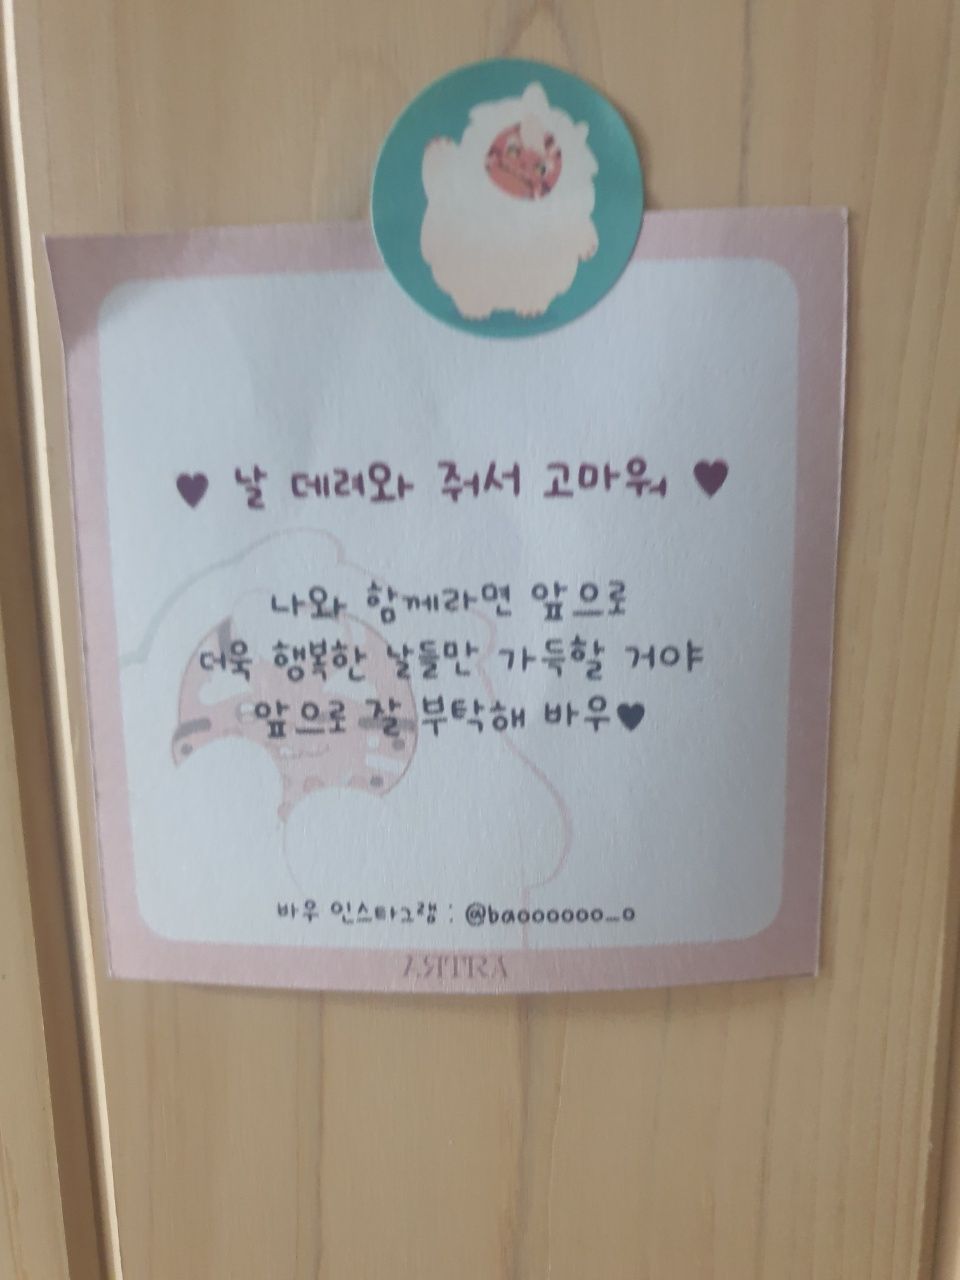 ♥ 날 데려와 줘서 고마워 ♥
나와 함께라면 앞으로
더욱 행복한 날들만 가득할 거야
앞으로 잘 부탁해 바우♥
바우 인스타그램 : @baoooooo_o